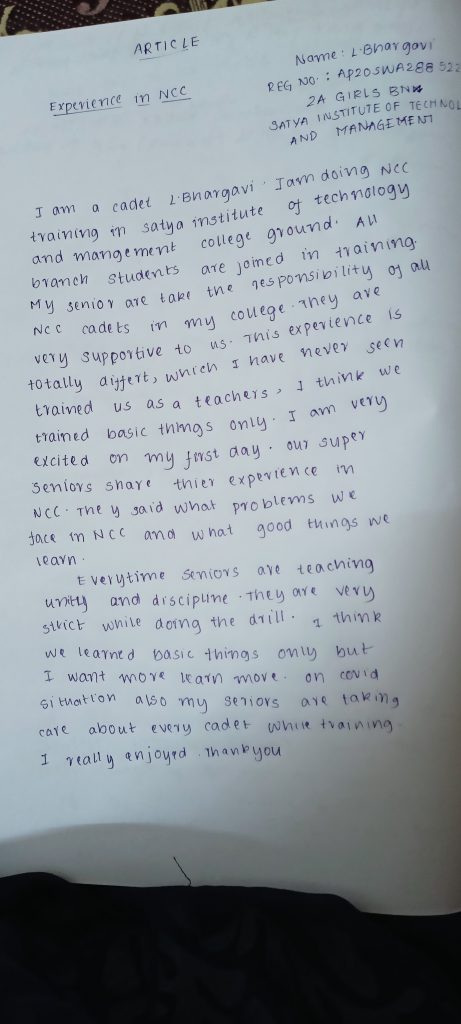 ARTICLE
Name: L.Bhargavi
REG NO.: AP20SWA288522
Experience in NCC
2A GIRLS BNW
SATYA INSTITUTE OF TECHNOL
AND MANAGEMENT
I am a cadet L.Bhargavi. Iam doing NCC
training in satya institute of technology
and mangement college ground. All
branch students are joined in training.
My senior are take the responsibility of all
NCC cadets in my college. They are
very supportive to us. This experience is
totally differt, which I have never seen
trained us as a teachers, I think we
trained basic things only. I am very
excited on my first day. our super
seniors share thier experience in
NCC. They said what problems we
face in NCC and what good things we
learn.
Everytime seniors are teaching
unity and discipline. They are very
strict while doing the drill. I think
we learned basic things only but
I want more learn more. on covid
situation also my seriors are taking
care about every cadet while training.
I really enjoyed. Thankyou